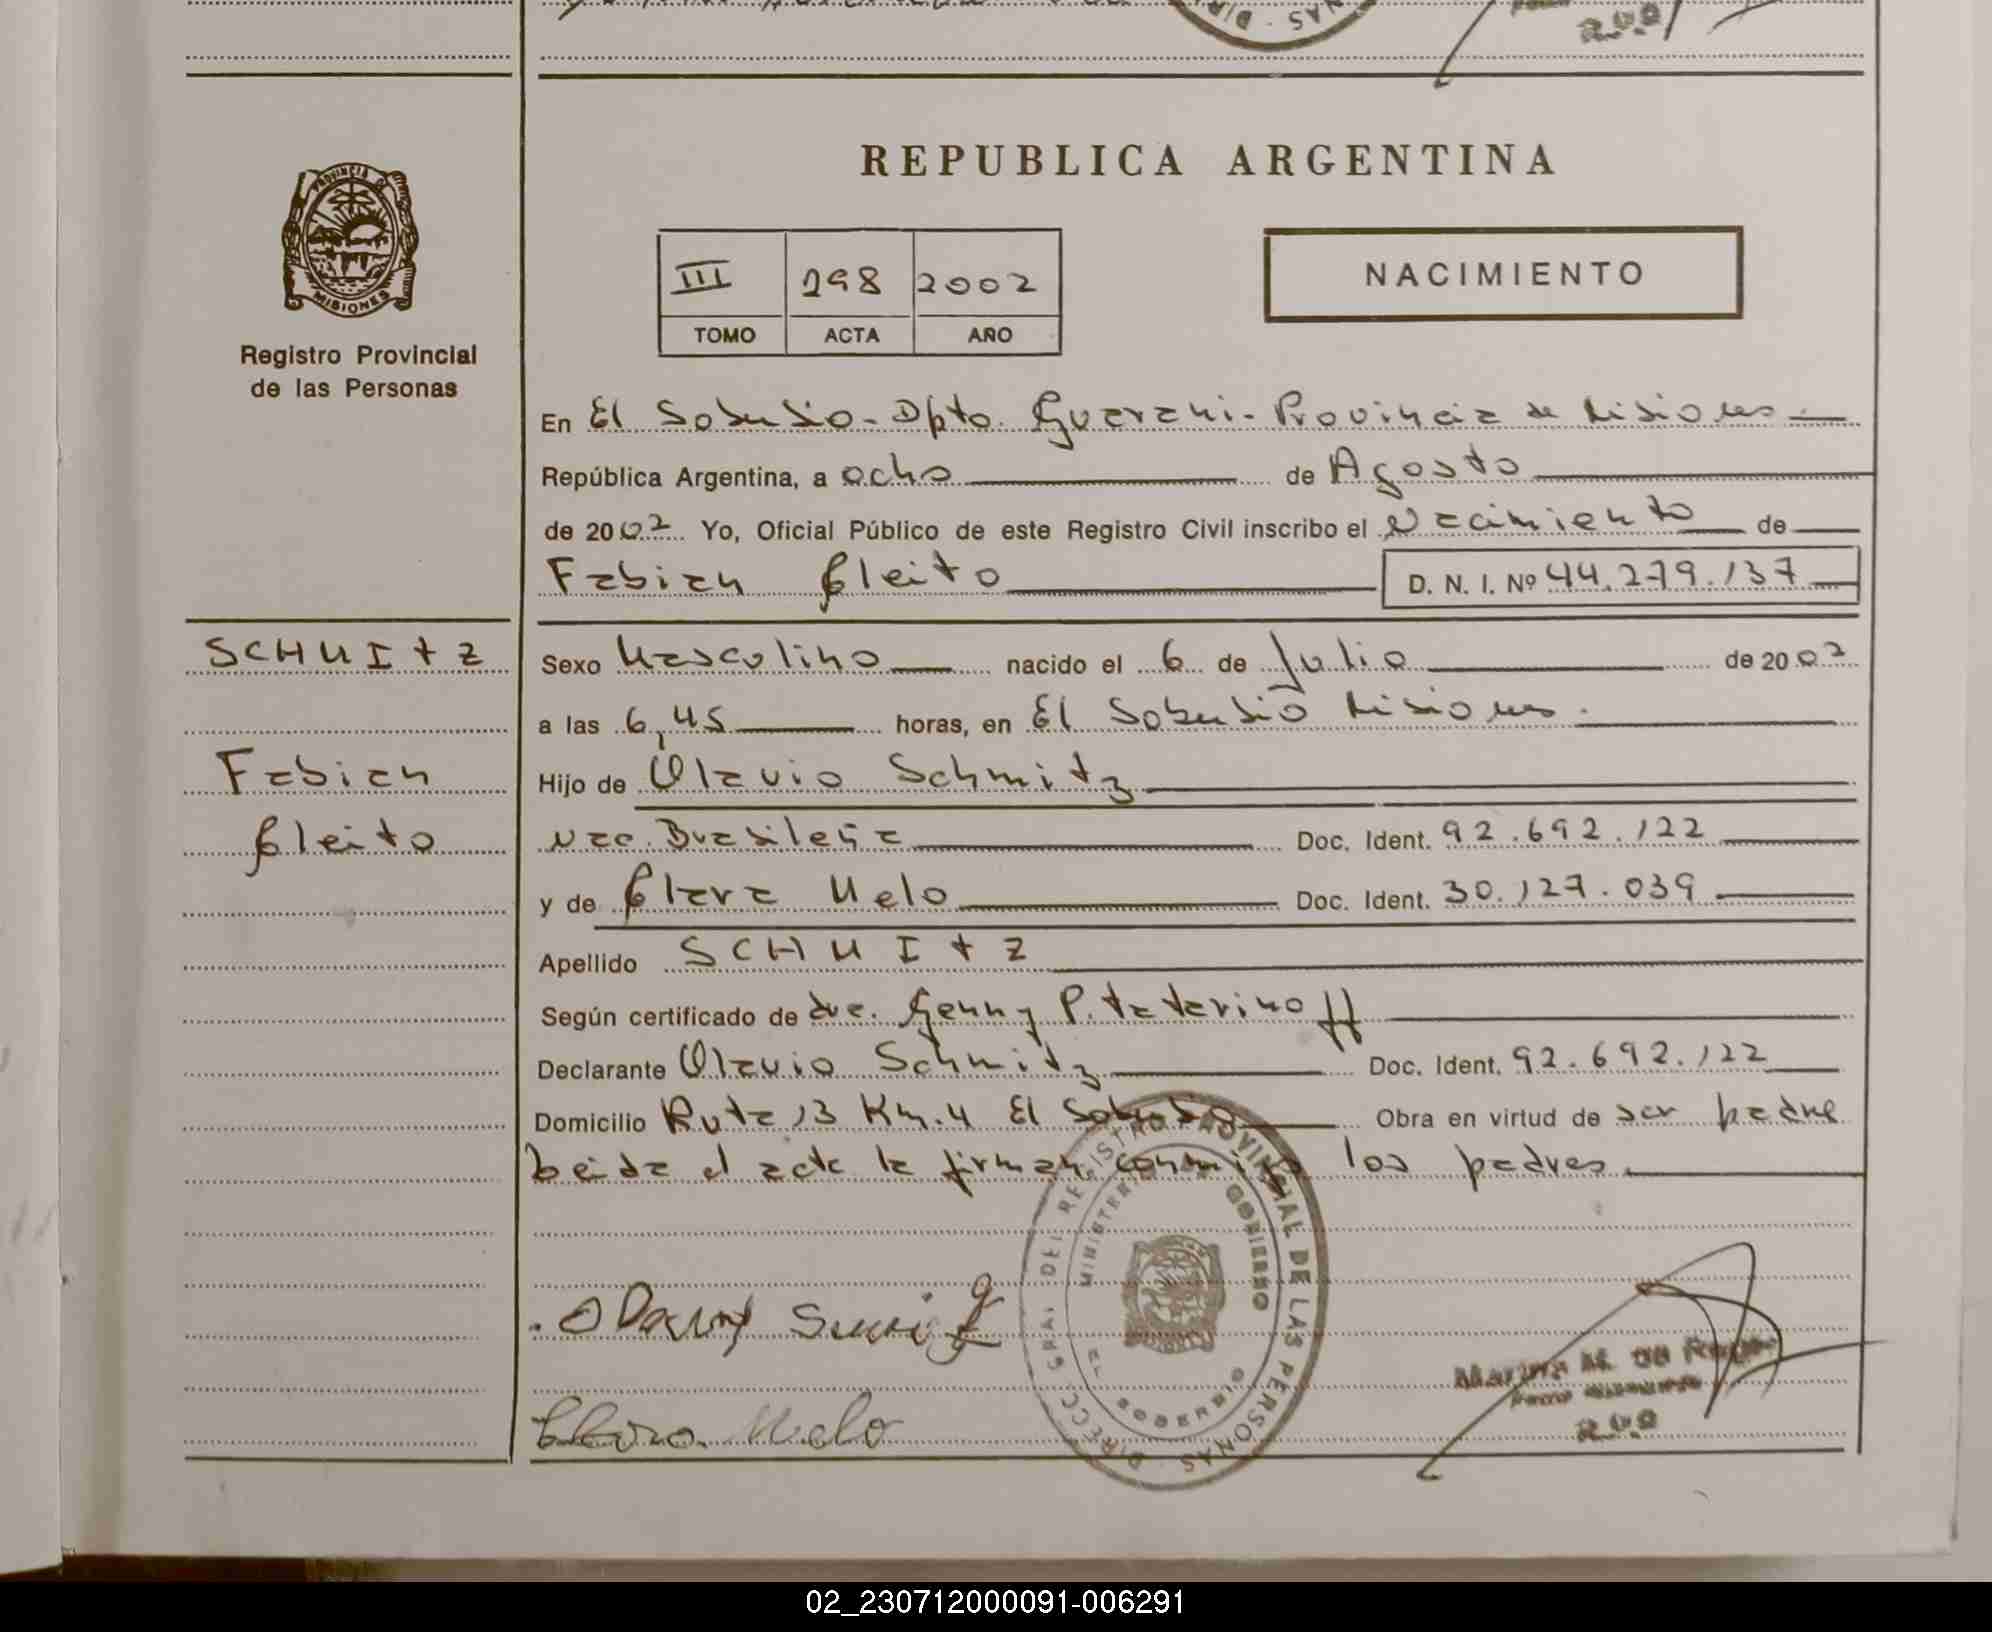 REPUBLICA ARGENTINA
PROVINCIA DE
MISIONES
Registro Provincial
de las Personas
III 298 2002
TOMO ACTA AÑO
NACIMIENTO
En El Soberbio - Dpto. Guarani - Provincia de Misiones.
República Argentina, a ocho de Agosto
de 2002 Yo, Oficial Público de este Registro Civil inscribo el Nacimiento de
Fabian Cleito D. N. I. Nº 44.279.137
SCHMITZ
Fabian
Cleito
Sexo Masculino nacido el 6 de Julio de 2002
a las 6,45 horas, en El Soberbio Misiones.
Hijo de Olavio Schmitz
Nac. Brasileña Doc. Ident. 92.692.122
y de Clara Melo Doc. Ident. 30.127.039
Apellido SCHMITZ
Según certificado de dra. Genny P. Tatarinoff
Declarante Olavio Schmitz Doc. Ident. 92.692.122
Domicilio Ruta 13 Km. 4 El Soberbio Obra en virtud de ser padre
Leida el acta la firman conmigo los padres
DIRECC. GRAL. DEL REGISTRO PROVINCIAL DE LAS PERSONAS
MINISTERIO GOBIERNO
EL SOBERBIO
Clara Melo
Marina M.
02_230712000091-006291